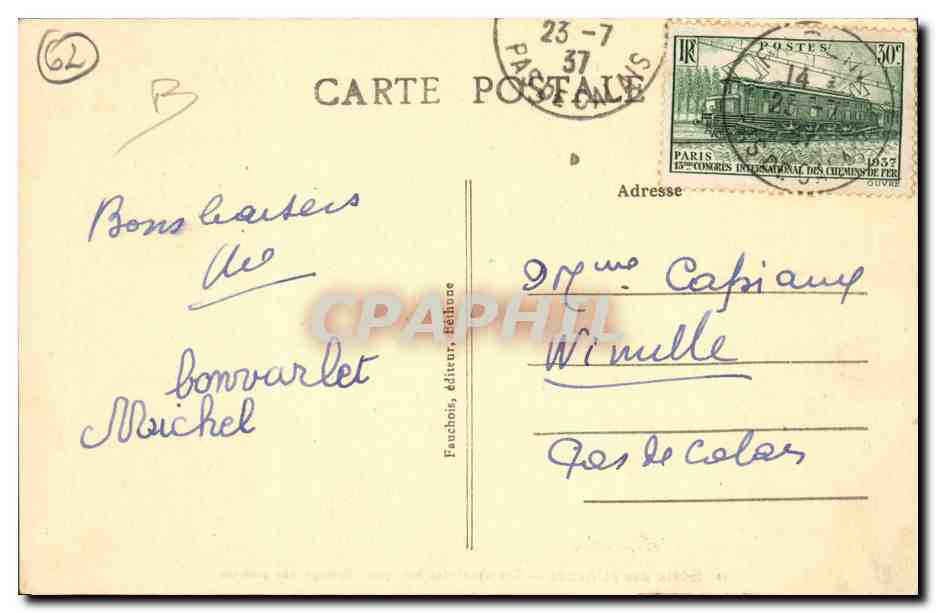 62
B
23 -7
37
PAS DE CALAIS
CARTE POSTALE
RF POSTES 30c
14
PARIS 1937
13me CONGRES INTERNATIONAL DES CHEMINS DE FER
OUVRÉ
Adresse
Bons baisers
de
bonvarlet
Michel
Fauchois, éditeur, Béthune
CPAPHIL
Mme Capiaux
Wimille
Pas de Calais